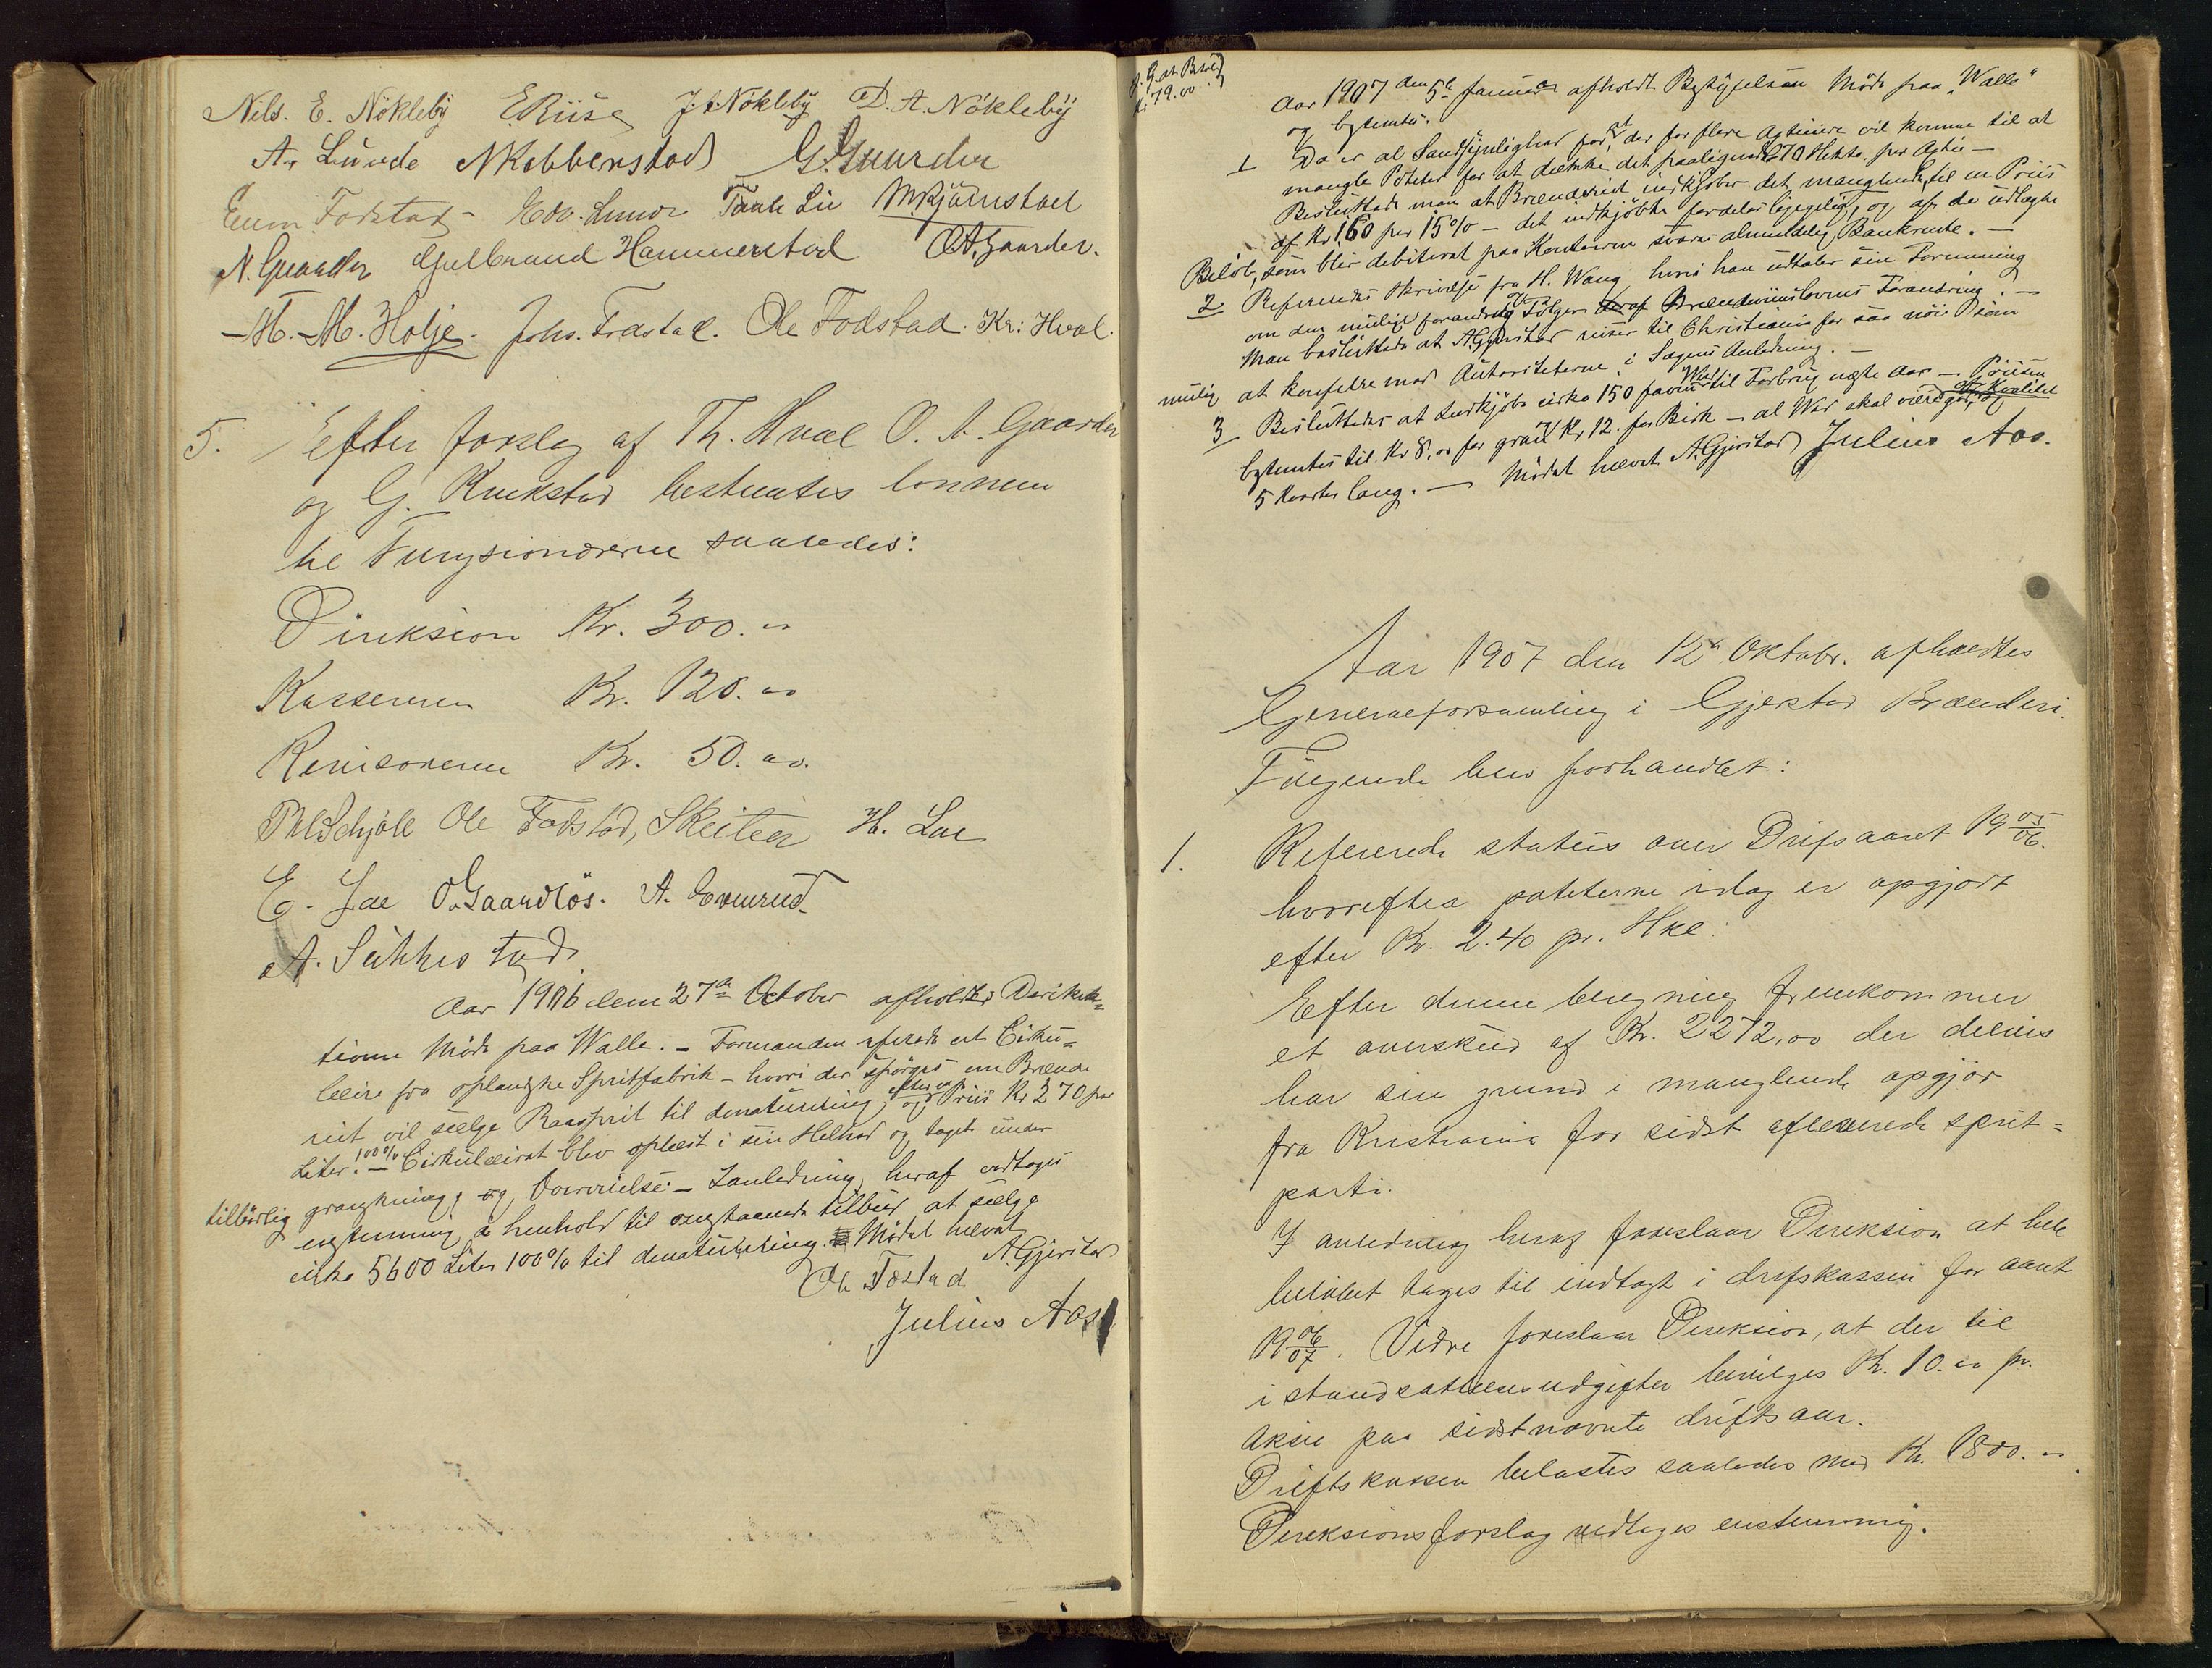 Nils. E. Nökleby E. Riise J. A. Nökleby D. A. Nökleby
A. Lunde N Kobbenstad G. Gaarder
Even Fodstad - Edv. Lunde Torle Lie M. Kjærnstad
N. Gaarder Gulbrand Hammerstad O. A. Gaarder.
M. M. Holje. Johs. Fodstad. Ole Fodstad. Kr: Hval.
5. Efter forslag af Th. Hval O. A. Gaarder
og G. Ruekstad bestemtes lønnen
til Fungsionærerne saaledes:
Direksion Kr. 300.00
Kassereren Kr. 120.00
Revisoreren Kr. 50.00.
Ole Fodstad, H. Loe
E. Loe O. Gaardlös. A.
A.
Aar 1906 den 27de October afholdtes Direk-
tionen Möde paa Walle. - Formanden referede et Cirku-
lære fra oplandske Spritfabrik - hvori der spörges om Brænde
riet vil sælge Raasprit til denaturering, og efter en Priis Kr 270 per
Liter. 100% - Cirkulæret blev oplæst i sin Helhed og taget under
tilbörlig granskning og Overveielse - I anledning heraf vedtoges
enstemmig i henhold til ovenstaaende tilbud at sælge
cirka 5600 Liter 100% til denaturering. Mödet hævet
Ole Fostad A. Gjerstad
Julius Aas
Aar 1907 den 5te Januar afholdt Bestyrelsen Möde paa "Walle"
og bestemtes.
1 Da er al Sandsynlighed for, at der for flere Agtinire vil komme til at
mangle Poteter for at dække det paalignede 70 Hekto. per Agtie -
Besluttede man at Brænderiet indkjöber det manglende, til en Priis
af Kr 1,60 per 15% - det indkjöbte fordeles ligegelig, og af de udlagte
Belöb, som blir debiteret paa Kontoerne svares almindelig Bankrente. -
2 Refereredes Skrivelse fra H. Wang hvori han udtaler sin Formening
om den mulige forandring og Fölger af Brændeviinslovens Forandring. -
Man besluttede at A. Gjerstad reiser til Christiania for saa nöie som
mulig at konferere med Autoriteterne i Sagens Anledning. -
3 Besluttedes at Indkjöbe cirka 150 favne Wed til Forbrug næste Aar - Prisen
bestemtes til Kr 8.00 for gran, Kr 12. for Birk - al Wed skal være god Kvalitet
5 Kvarter lang. - Mödet hævet A. Gjerstad Julius Aas.
Aar 1907 den 12te Oktobr. afholdtes
Generalforsamling i Gjerstad Brænderi.
Fölgende blev forhandlet:
1. Refererede status over Drifsaaret 19 05/06.
hvorefter poteterne idag er opgjort
efter Kr. 2.40 pr. Hkl.
Efter denne beregning fremkommer
et overskud af Kr. 2212,00 der delvis
har sin grund i manglende opgjör
fra Kristiania for sidst afleverede sprit-
parti.
I anledning heraf foreslaar Direksion at hele
belöbet tages til indtægt i drifskassen for aaret
19 06/07. Vidre foreslaar Direksion, at der til
istandsættelsesudgifter bevilges Kr. 10.00 pr.
Aksie paa sidstnævnte driftsaar.
Driftskassen belastes saaledes med Kr. 1800.00.
Direksionsforslag vedtages enstemmig.